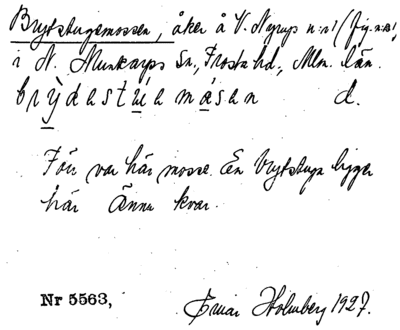 Brytstugemossen, åker å V. Nyrup n:r 1 (fig. n:r 1),
i N. Munkarps Sn., Frosta hd., Mlm. län.
brỳdastúamåsan d.
Förr var här mosse. En brytstuga ligger
här ännu kvar.
Nr 5563, Einar Holmberg 1927.